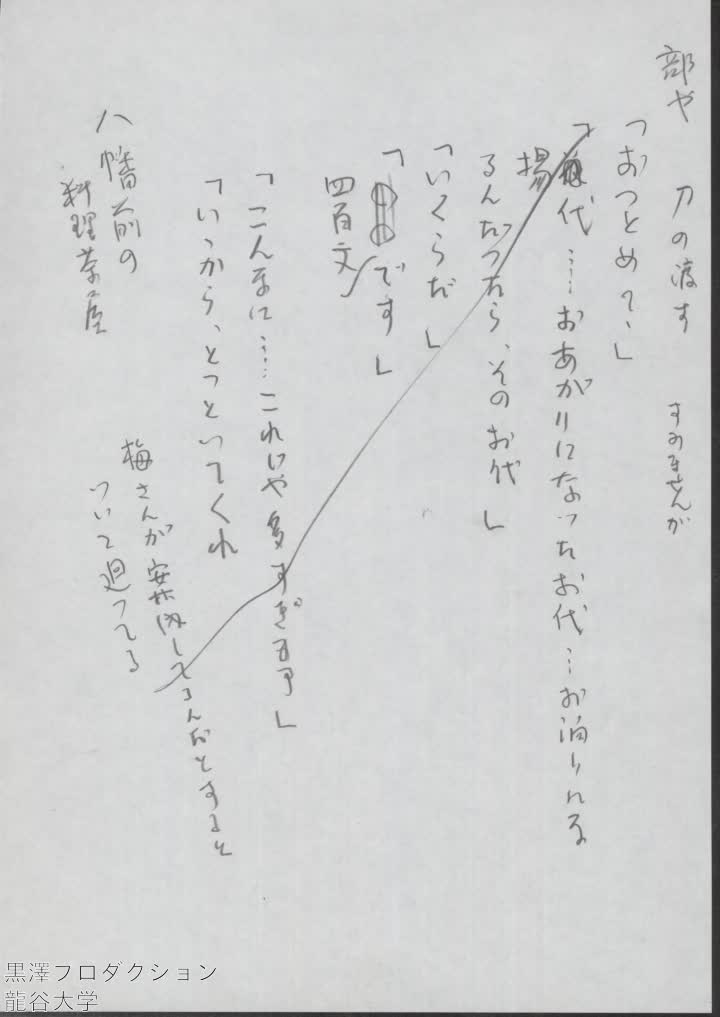 部や 刀の渡す すみませんが
「おつとめて、」
揚代……おあがりになったお代…お泊りにな
るんだつたら、そのお代」
「いくらだ」
「です」
四百文
「こんなに……これじや多すぎ」
「いゝから、とつといてくれ
梅さんが案内してるんだとすると
ついて廻つてる
八幡前の
料理茶屋
黒澤プロダクション
龍谷大学